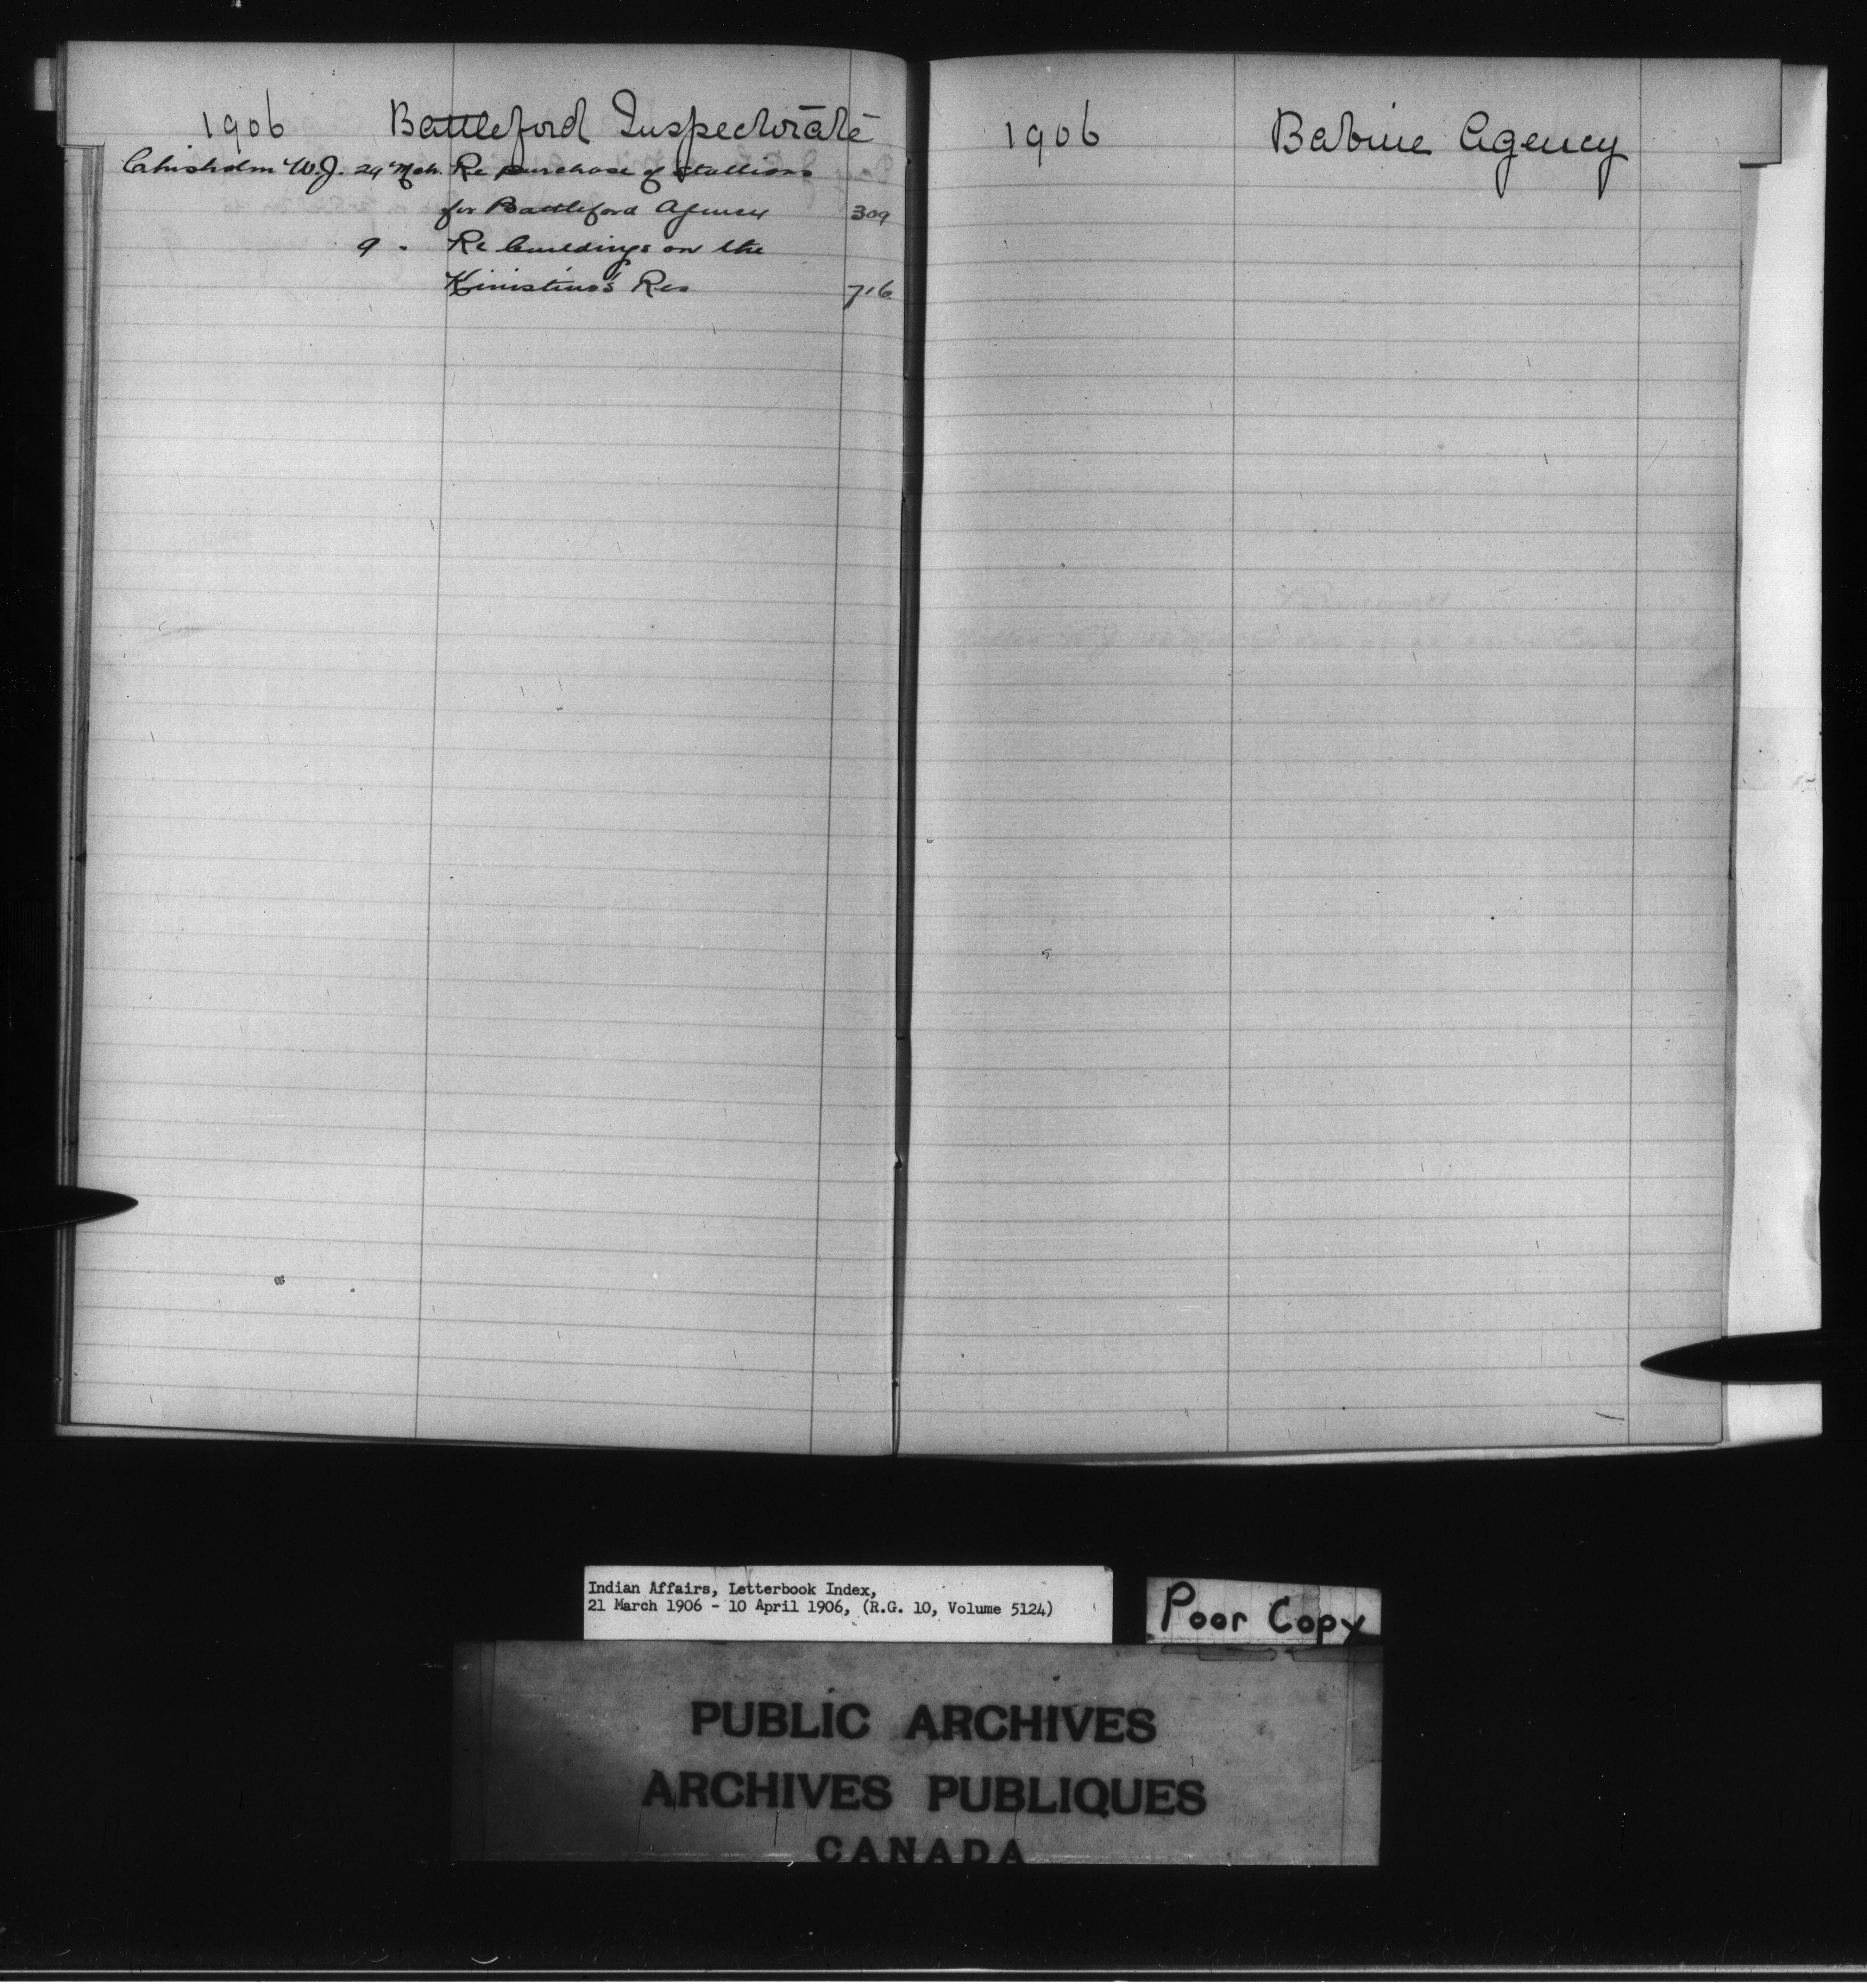 1906 Battleford Inspectorate
Chisholm W.J. 29 Mch. Re purchase of stallions
for Battleford Agency 309
9 " Re buildings on the
Kinistino's Res 716
1906 Babine Agency
Indian Affairs, Letterbook Index,
21 March 1906 - 10 April 1906, (R.G. 10, Volume 5124)
Poor Copy
PUBLIC ARCHIVES
ARCHIVES PUBLIQUES
CANADA